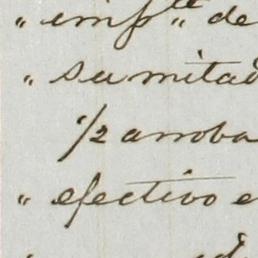 " imp.te de
" su mitad
1/2 arroba
" efectivo e
"